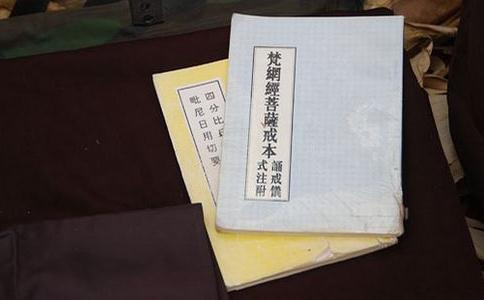 梵網經菩薩戒本
誦戒儀
式注附
四分比
毗尼日用切要